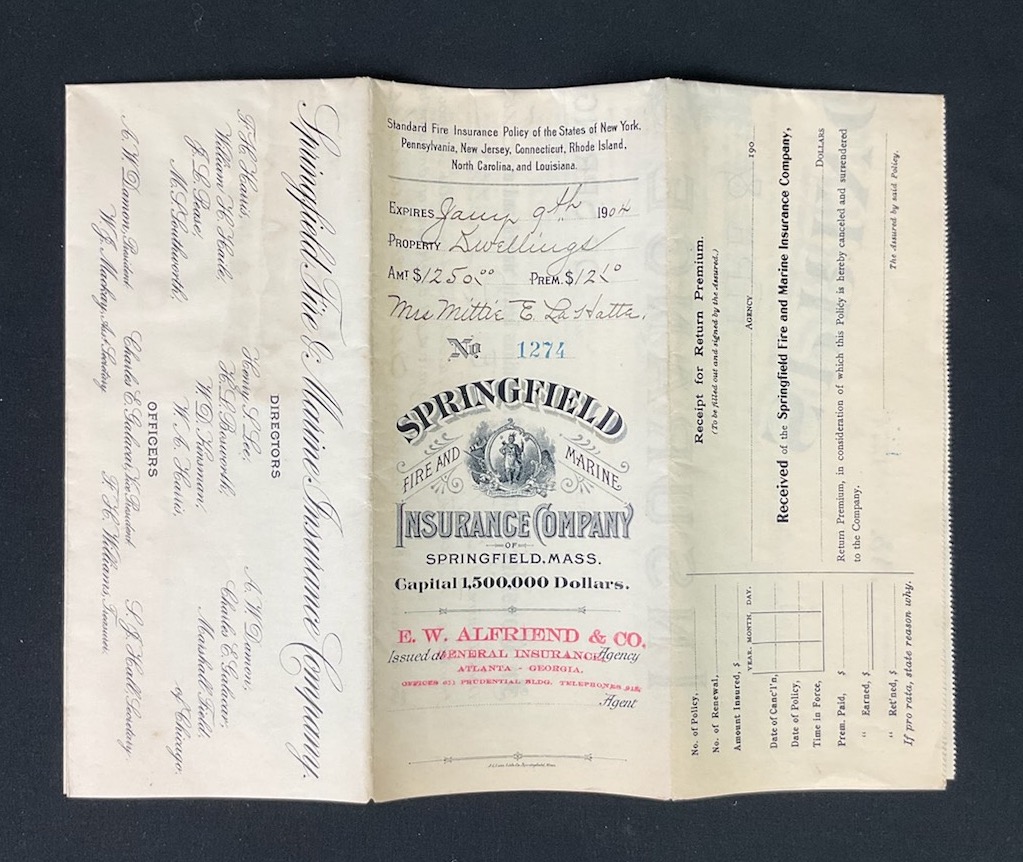 Springfield Fire & Marine Insurance Company.
DIRECTORS
F. H. Harris,
Henry S. Lee,
A. W. Damon,
William H. Haile,
H. L. Bosworth,
Charles E. Galacar,
J. L. Pease,
W. D. Kinsman,
Marshall Field
M. S. Southworth,
W. A. Harris,
of Chicago.
OFFICERS
A. W. Damon, President
Charles E. Galacar, Vice President
S. J. Hall, Secretary.
W. J. Mackay, Asst. Secretary
F. H. Williams, Treasurer.
Standard Fire Insurance Policy of the States of New York,
Pennsylvania, New Jersey, Connecticut, Rhode Island,
North Carolina, and Louisiana.
EXPIRES Jany 9th 1904
PROPERTY Dwellings
AMT $1250.00 PREM. $12.10
Mrs Mittie E. La Hatte.
No 1274
SPRINGFIELD
FIRE AND MARINE
INSURANCE COMPANY
OF
SPRINGFIELD, MASS.
Capital 1,500,000 Dollars.
E. W. ALFRIEND & CO.
Issued at GENERAL INSURANCE Agency
ATLANTA - GEORGIA.
OFFICES 631 PRUDENTIAL BLDG. TELEPHONES
Agent
Receipt for Return Premium.
(To be filled out and signed by the Assured.)
AGENCY 190
Received of the Springfield Fire and Marine Insurance Company,
DOLLARS
Return Premium, in consideration of which this Policy is hereby canceled and surrendered
to the Company.
The Assured by said Policy.
No. of Policy,
No. of Renewal,
Amount Insured, $
YEAR. MONTH. DAY.
Date of Canc'l'n,
Date of Policy,
Time in Force,
Prem. Paid, $
" Earned, $
" Ret'ned, $
If pro rata, state reason why.